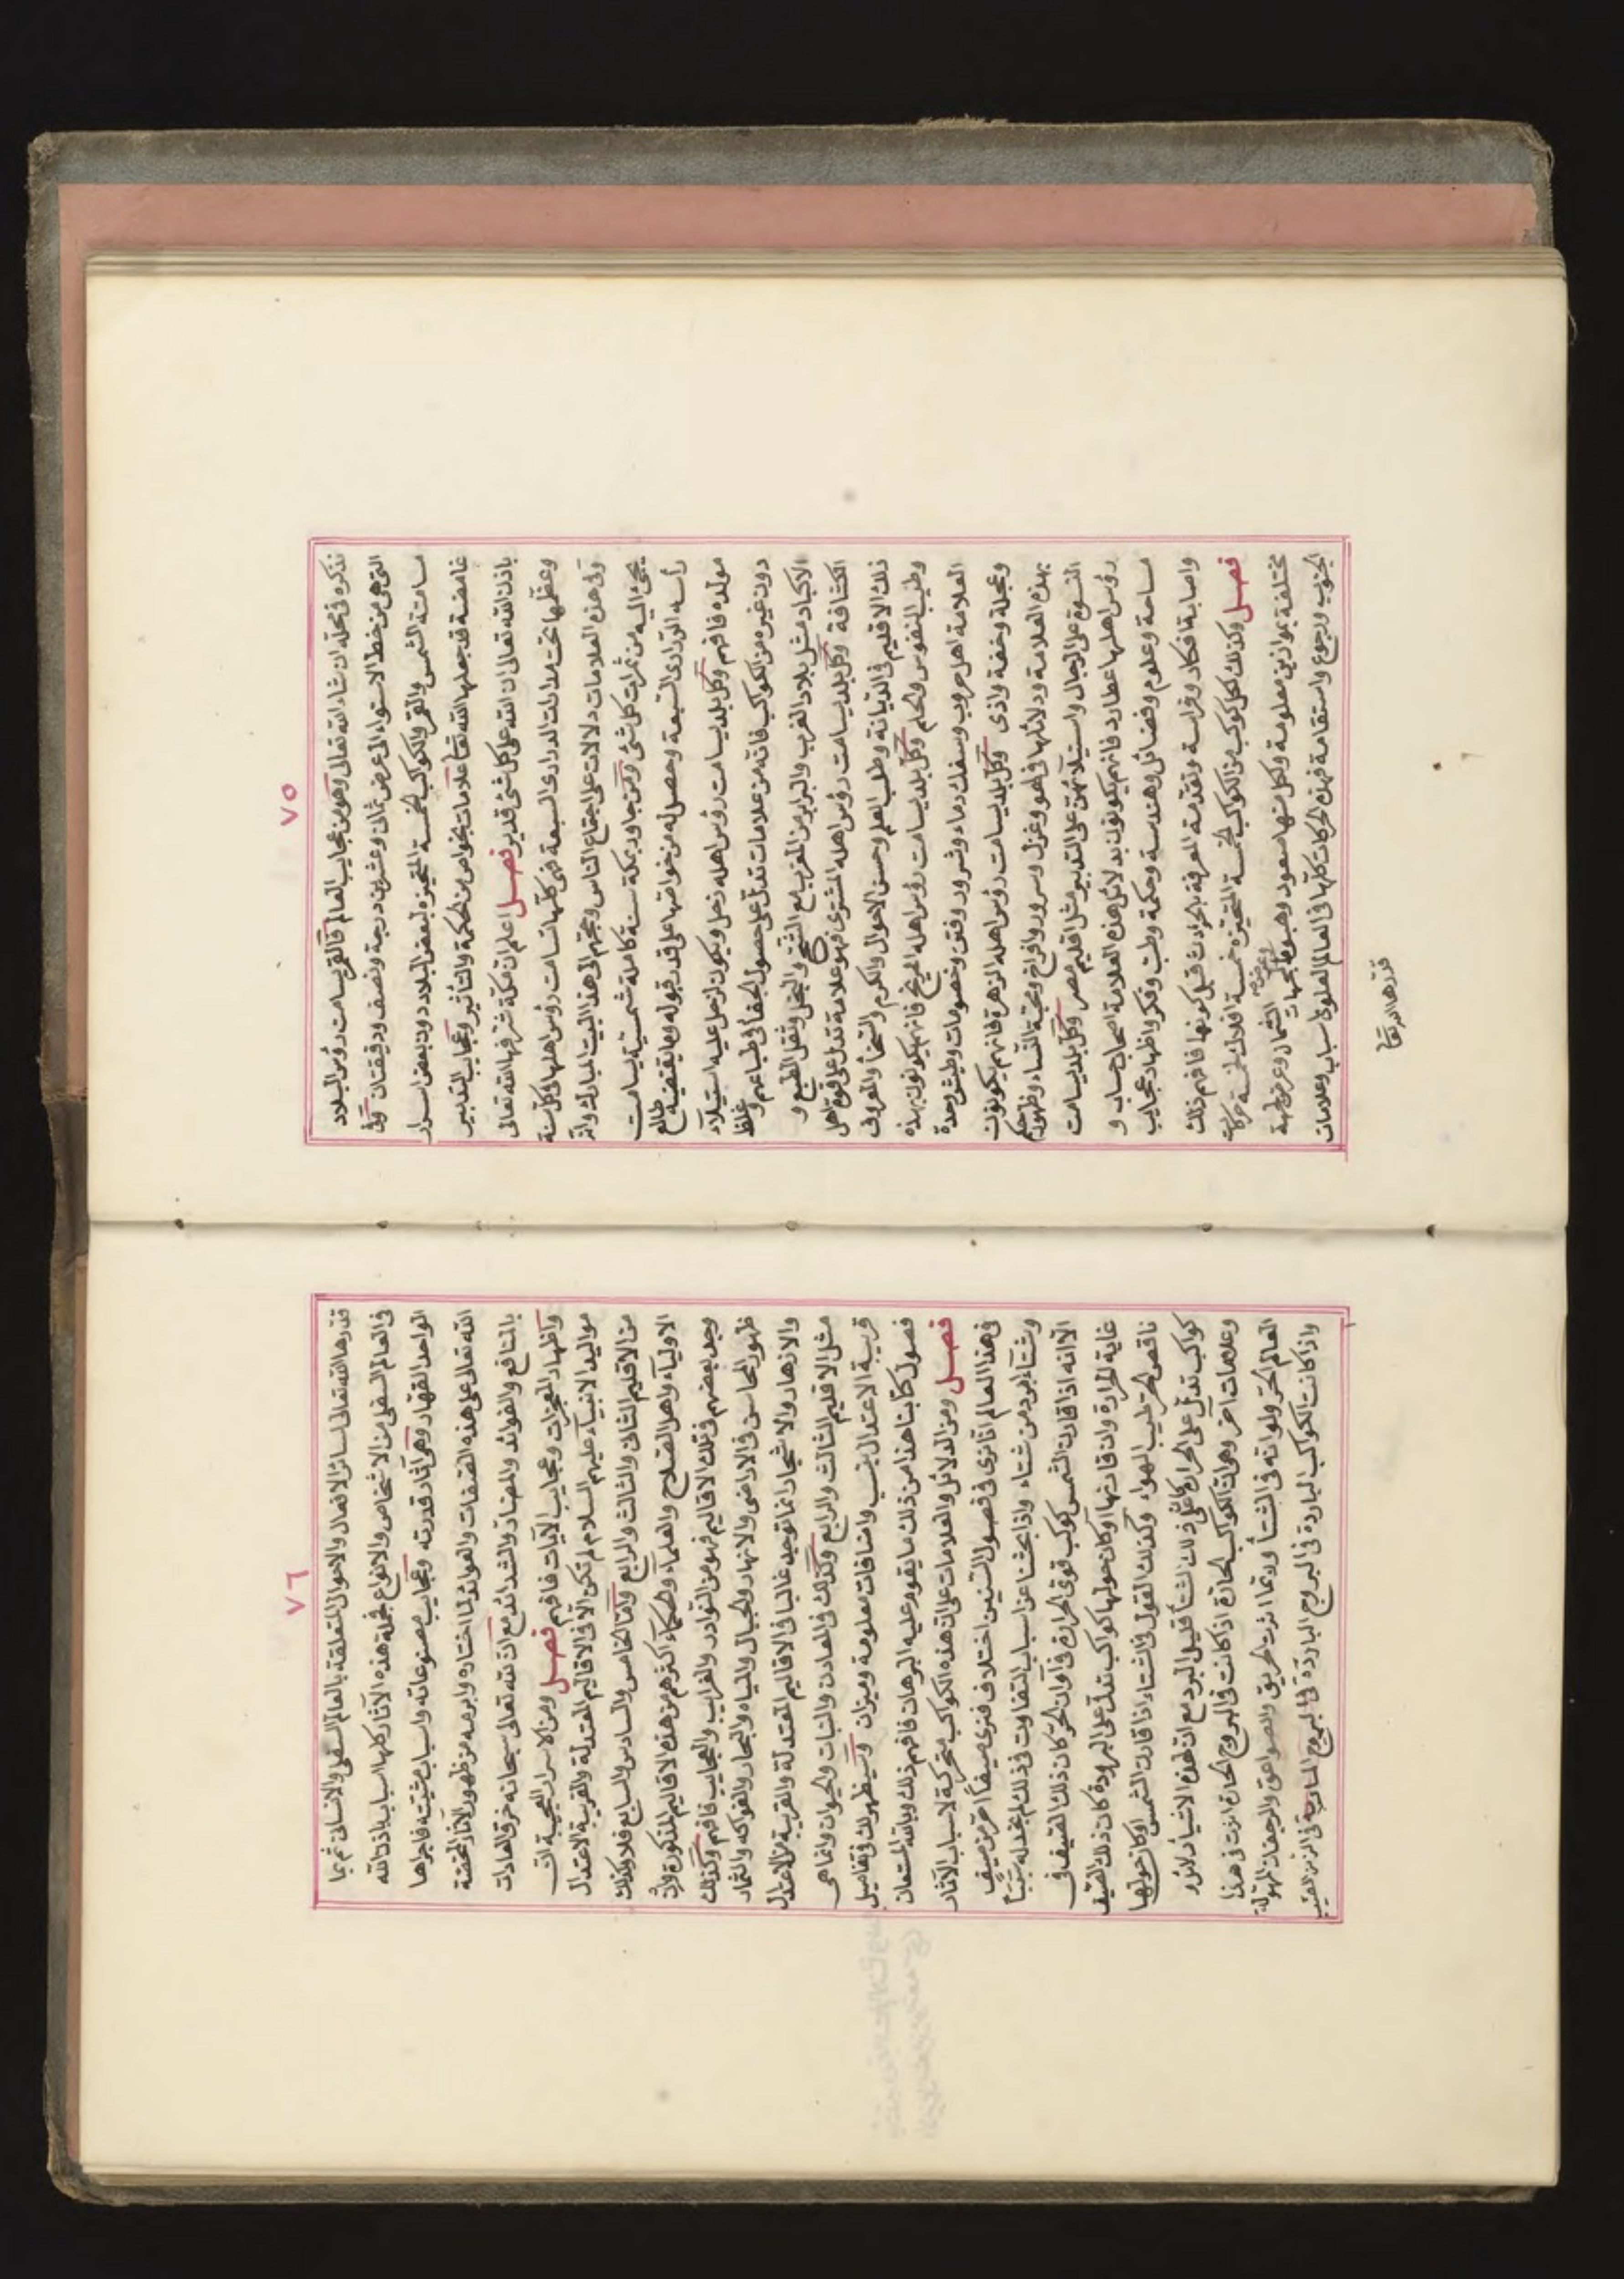 ٧٥
نذكره فى محله ان شاء الله تعالى وهو من عجايب العالم فالقمر يسامت رؤس البلاد
التى هى من خط الاستواء الى عرض ثمانى وعشرين درجة ونصف ودقيقتان وفى
مسامتة الشمس والقمر والكواكب الخمسة المتحيزة لبعض البلاد دون بعض اسرار
غامضة قد جعلها الله تعا علامات بخواص من الحكمة والتأثير وعجايب التدبير
باذن الله تعالى ان الله على كل شئ قدير فصل اعلم ان مكة شرفها الله تعالى
وعظمها تحت مدارات الدرارى السبعة فهى كلها تسامت رؤس اهلها فى كل سنة
وفى هذه العلامات دلالات على اجتماع الناس وحجهم الى هذا البيت المبارك وانه
يجئ اليه من ثمرات كل شئ ومن جاور بمكة سنة كاملة شمسية يسامت
رأسه الدرارى السبعة وحصل له من خواصها على قدر قبوله وما يقتضيه طالع
مولده فافهم وكل بلد يسامت رؤس اهله زحل ويكون لزحل عليه استيلاء
دون غيره من الكواكب فانه من علامات تدل على حصول الجفا فى طباعهم وغلظ
الاكباد مثل بلاد الغرب والبرابر من المغرب مع الشح والبخل وثقل الطبع و
الكثافة وكل بلد يسامت رؤس اهله المشترى فهو علامة تدل على قوة اهل
ذلك الاقليم فى الديانة وطلب العلم وحسن الاحوال والكرم والسخأ والمعروف
وطيب النفوس والحلم وكل بلد يسامت رؤس اهله المريخ فانهم يكونون بهذه
العلامة اهل حروب وسفك دماء وشرور وفتن وخصومات وطيش وحدة
وعجلة وخفة واذى وكل بلد يسامت رؤس اهله الزهرة فانهم يكونون
بهذه العلامة ودلائلها فى لهو وغزل وسرور وافراح ومحبة النساء وظهور حكم
النسوة على الرجال واستيلائهن على التدبير مثل اقليم مصر وكل بلد يسامت
رؤس اهلها عطارد فانهم يكونون بدلائل هذه العلامة اصحاب حساب و
مساحة وعلوم وفضائل وهندسة وحكمة وطب وفكر واظهار عجايب
واصابة افكار وفراسة وتقدمة المعرفة بالحوادث قبل كونها فافهم ذلك
فصل وكذلك لكل كوكب من الكواكب الخمسة المتحيزة خمسة افلاك لخمسة حركات
مختلفة بموازين معلومة ولكل منها صعود وهبوط بجهات الشمال وعرض لجهة
الجنوب ورجوع واستقامة فهذه الحركات كلها فى العالم العلوى اسباب وعلامات
قدرها الله تعا
٧٦
قدرها الله تعالى لسائر الافعال والاحوال المتعلقة بالعالم السفلى والانسانى ثم بما
فى العالم السفلى من الاشخاص والانواع فجملة هذه الآثار كلها اسباب باذن الله
الواحد القهار وهى آثار قدرته وعجايب مصنوعاته واسباب مشيته فاجراها
الله تعالى على هذه الصفات والعوائد لما اختاره وابرمه من ظهور الآثار المختصة
بالمنافع والفوائد والمضار والشدائد مع ان الله تعالى سبحانه خرق العادات
واظهار المعجزات وعجايب الآيات فافهم فصل ومن الاسرار العجيبة ان
مواليد الانبياء عليهم السلام لم تكن الا فى الاقاليم المعتدلة والقريبة الاعتدال
من الاقليم الثانى والثالث والرابع واما الخامس والسادس والسابع فلا وكذلك
الاولياء واهل الصلاح والعلماء والحكماء اكثرهم من هذه الاقاليم المذكورة وان
وجد بعضهم فى تلك الاقاليم فهو من النوادر والغرايب والعجايب فافهم وكذلك
ظهور المحاسن فى الاراضى والانهار والجبال والمياه والبحار والفواكه والثمار
والازهار والاشجار انما توجد غالبا فى الاقاليم المعتدلة والقريبة من الاعتدال
مثل الاقليم الثالث والرابع وكذلك فى المعادن والنبات والحيوان وانما هى
قريبة الاعتدال بنسب واضافات معلومة وميزان وسيظهر لك فى تفاصيل
فصول كتابنا هذا من ذلك ما يقوم عليه البرهان فافهم ذلك وبالله المستعان
فصل ومن الدلائل والعلامات على ان هذه الكواكب متحركة لاسباب الآثار
فى هذا العالم انا نرى فى فصول السنين اختلاف فنرى صيفاً احر من صيف
وشتاء ابرد من شتاء واذا بحثنا عن اسباب التفاوت فى ذلك لم نجد له سبباً
الا انه اذا قارن الشمس كوكب قوى الحرارة فى آوان الحر كان ذلك الصيف فى
غاية الحرارة واذا قارنها او كان حولها كواكب تدل على البرودة كان ذلك الصيف
ناقص الحر طيب الهواء وكذلك القول فى الشتاء اذا قارن الشمس او كان حولها
كواكب تدل على الحرارة كان ذلك الشتأ قليل البرد مع ان لهذه الاشيأ دلائل و
وعلامات اخر وهى ان الكواكب الحارة اذا كانت فى البروج الحارة اثرت فى هذا
العالم الحر ولو انه فى الشتأ وربما اثرت الحريق والصواعق والرجفات المهولة
واذا كانت الكواكب الباردة فى البروج الباردة فى الزمن الصيف